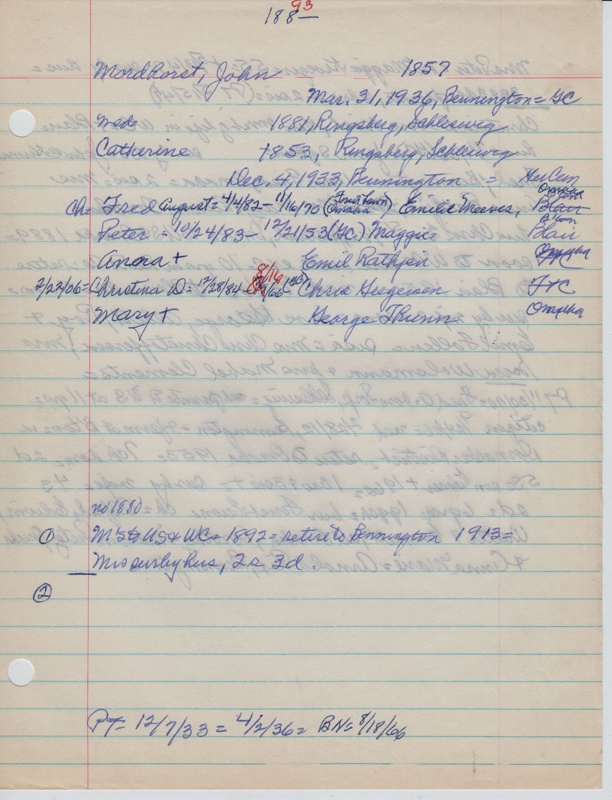 93
188—
Mordhorst, John 1857
Mar. 31, 1936, Bennington = GC
med= 1881, Ringsberg, Schleswig
Catherine +1853, Ringsberg, Schleswig
Dec. 4, 1933, Bennington =
ch= Fred August = 4/4/82 - 11/16/70 (Omaha) Emilie Meeves, Blair
Peter = 10/24/83 - 12/21/53 (GC) Maggie Blair
Anna + Emil Rathjen Omaha
2/22/06 = Christina D = 12/28/84 8/16/66 Chris Jurgensen FtC
Mary + George Thunn Omaha
md 1880 =
① M's to US & WC = 1892 = retire to Bennington 1913 =
Mrs surby hus, 2s 3d.
②
PT = 12/7/33 = 4/2/36 = BN = 8/18/66